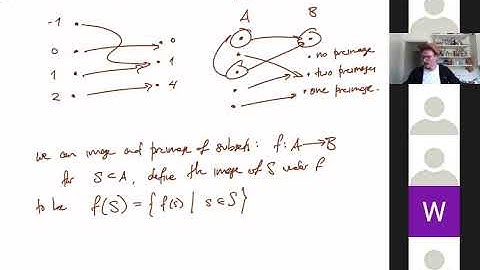 A B
-1
0 0
1 1
2 4
• no preimage
• two preimages
• one preimage.
we can image and preimage of subsets: f: A → B
for S ⊂ A, define the image of S under f
to be f(S) = { f(s) | s ∈ S }
W